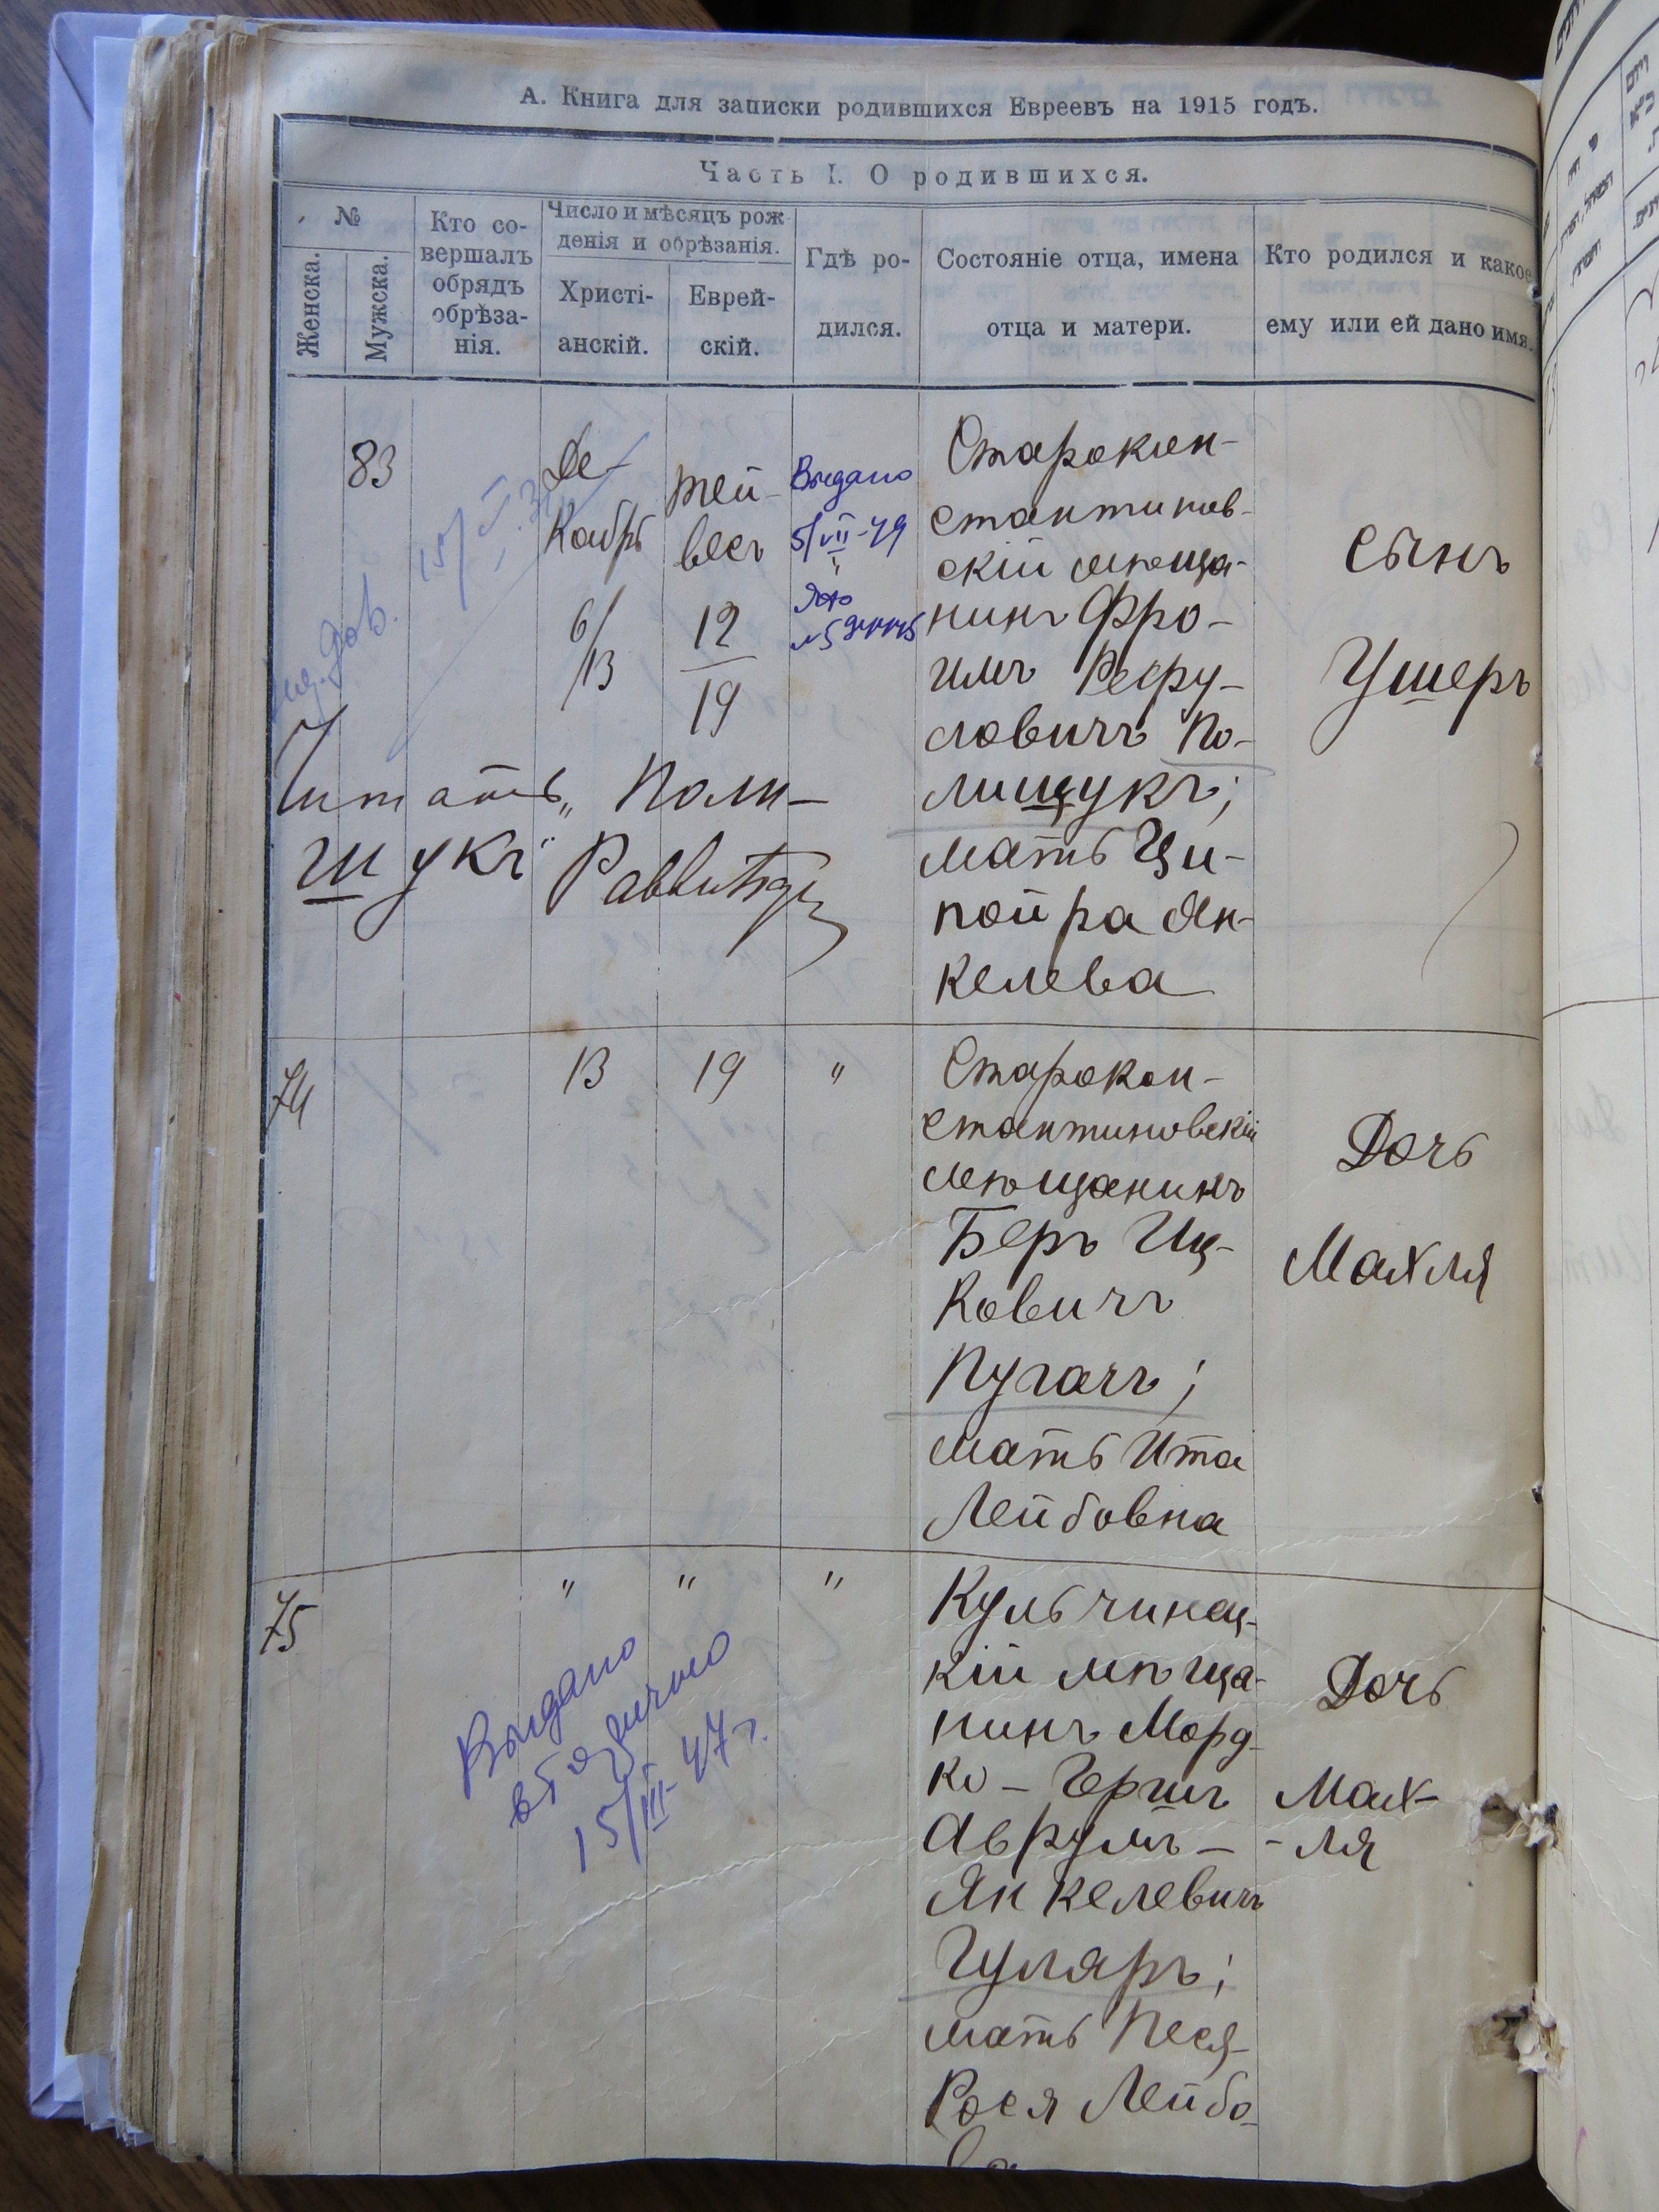 А. Книга для записки родившихся Евреевъ на 1915 годъ.
Часть I. О родившихся.
№
Женска.
Мужска.
Кто со-
вершалъ
обрядъ
обрѣза-
нія.
Число и мѣсяцъ рож
денія и обрѣзанія.
Христі-
анскій.
Еврей-
скій.
Гдѣ ро-
дился.
Состояніе отца, имена
отца и матери.
Кто родился и какое
ему или ей дано имя.
83
15/V.3
Де-
кабрь
6/
/13
Тей-
весъ
12
19
Выдано
5/VII-49
Старокон-
стантинов-
скій мѣща-
нинъ Фро-
имъ
словичъ По-
лищукъ;
мать Ци-
пойра Ян-
келева
сынъ
Ушеръ
Читать „Поли-
шукъ" Раввинъ
74
13
19
"
Старокон-
стантиновскій
мѣщанинъ
Беръ Иц-
ковичъ
Пугачъ;
мать Ита
Лейбовна
Дочь
Махля
75
"
"
"
Выдано
вторично
15/III-47 г.
Кульчинец-
кій мѣща-
нинъ Морд-
ко-Гершъ
Аврумъ-
Янкелевичъ
Гуляръ;
мать Песя-
Рося Лейбо-
ва
Дочь
Мах-
-ля